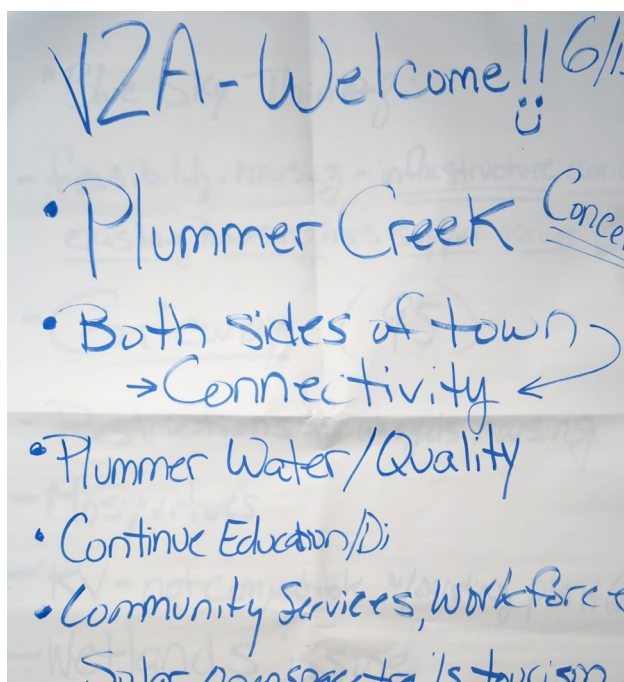 V2A - Welcome!! 6/1
• Plummer Creek
• Both sides of town
→ Connectivity ←
• Plummer Water/Quality
• Continue Education/Di
• Community Services, Workforce
Solar, trails, tourism